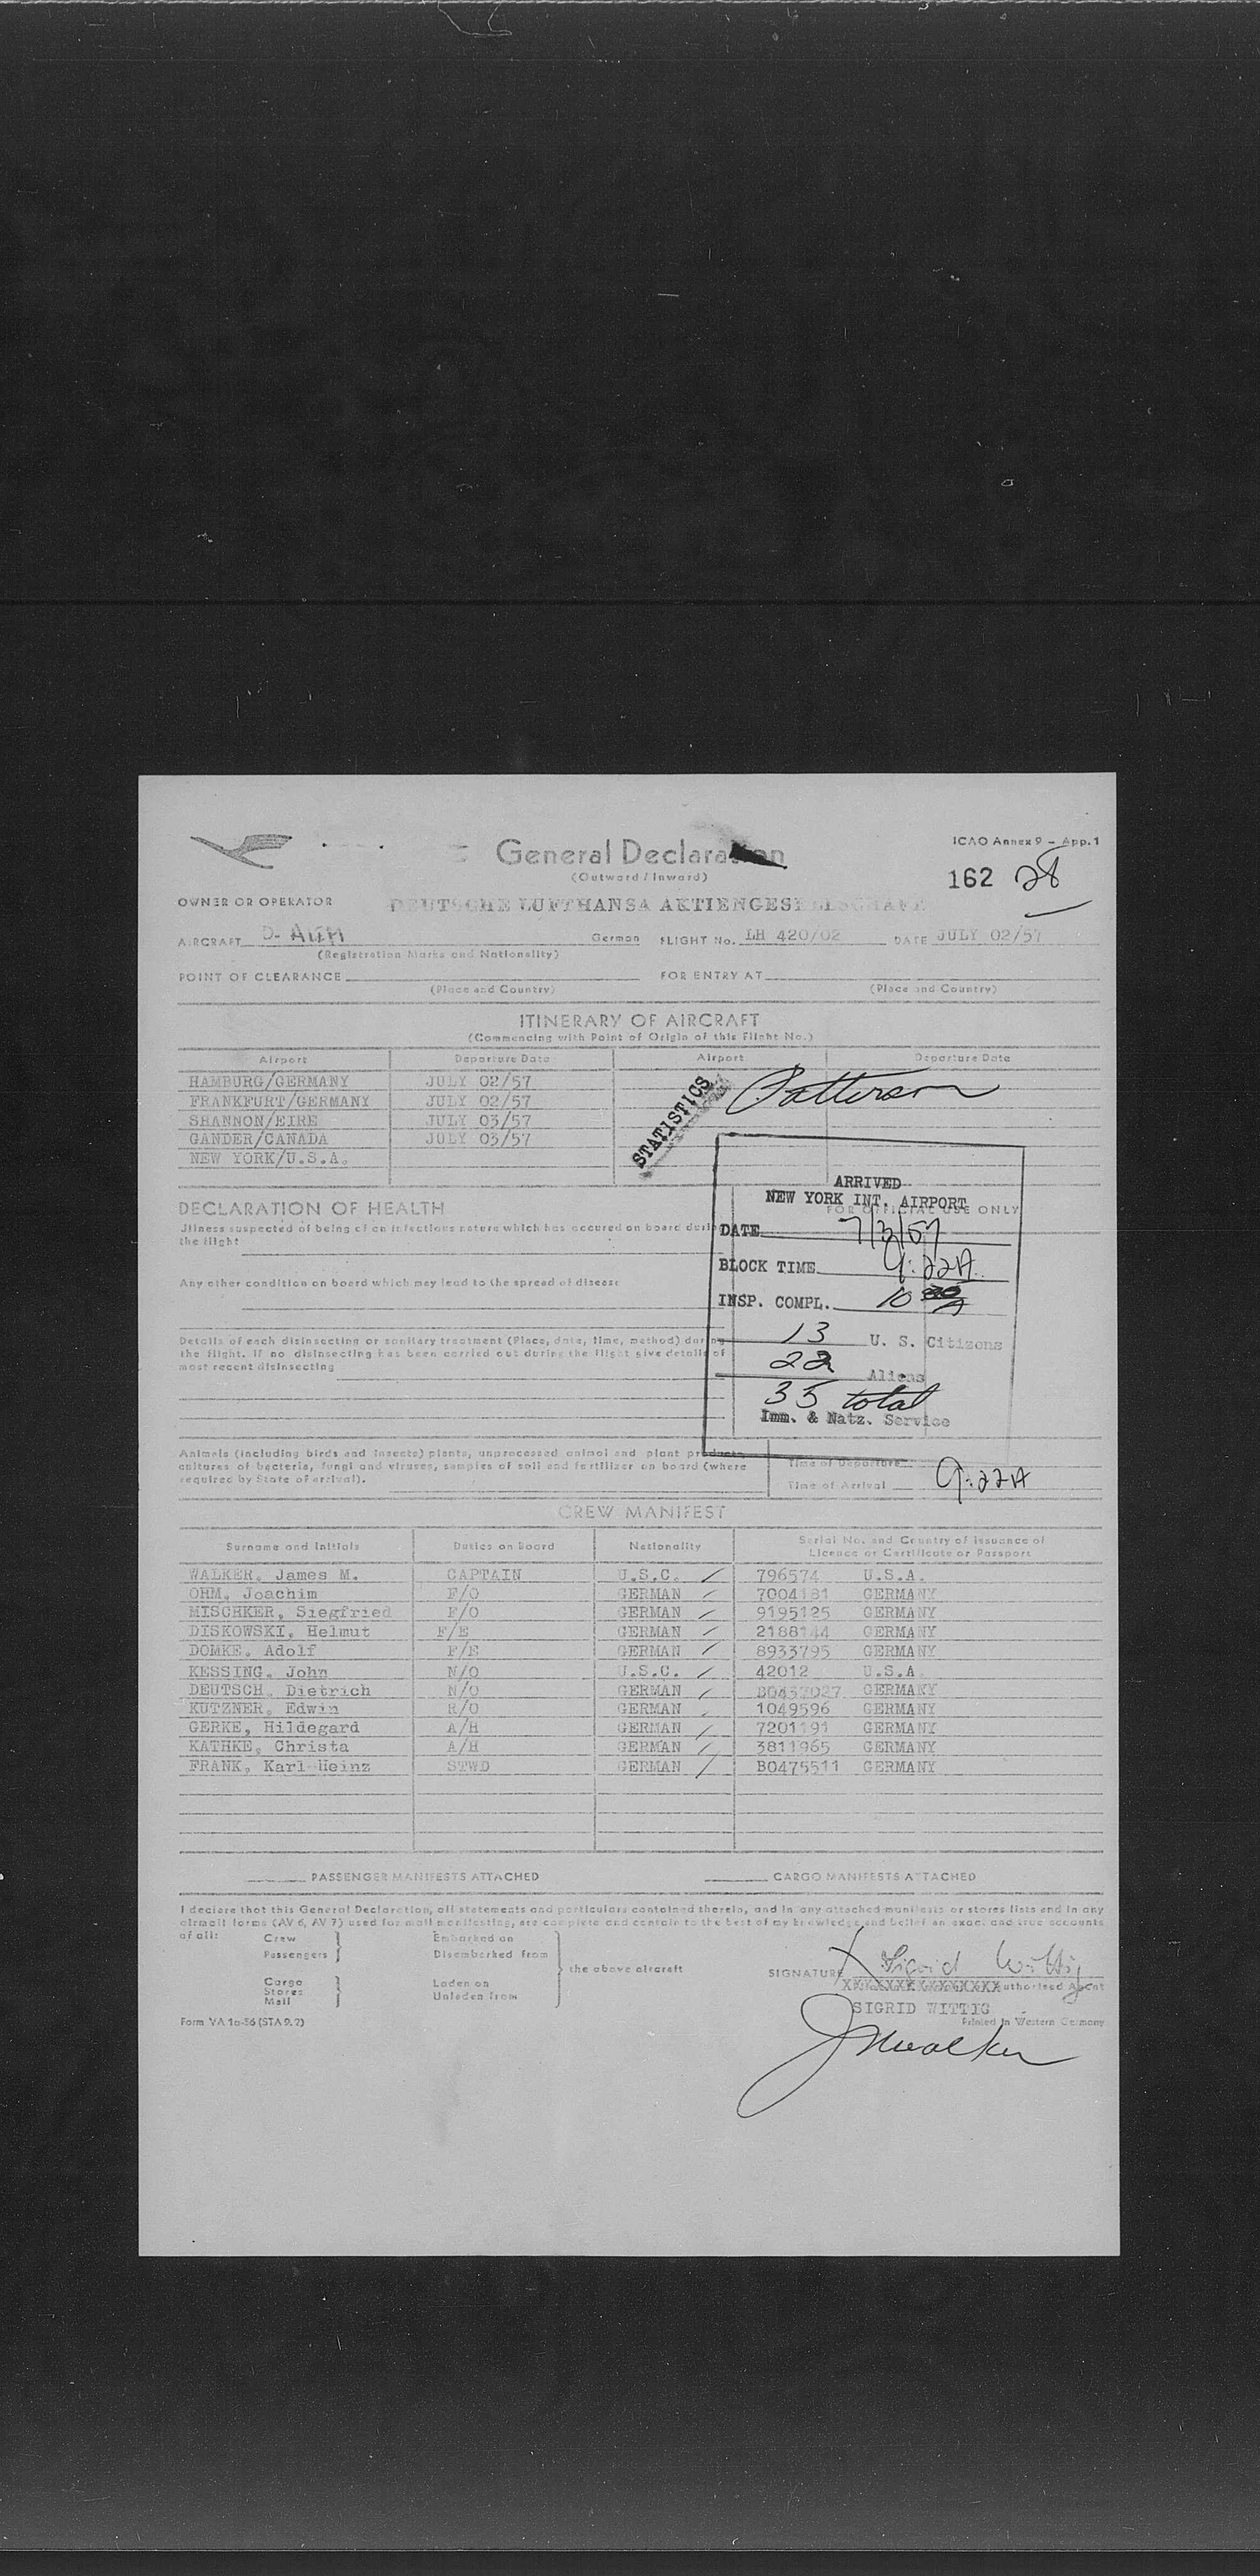 General Declaration
(Outward / Inward)
ICAO Annex 9 – App. 1
162 28
OWNER OR OPERATOR DEUTSCHE LUFTHANSA AKTIENGESELLSCHAFT
AIRCRAFT D- German FLIGHT No. LH 420/02 DATE JULY 02/57
(Registration Marks and Nationality)
POINT OF CLEARANCE FOR ENTRY AT
(Place and Country) (Place and Country)
ITINERARY OF AIRCRAFT
(Commencing with Point of Origin of this Flight No.)
Airport Departure Date Airport Departure Date
HAMBURG/GERMANY JULY 02/57
FRANKFURT/GERMANY JULY 02/57
SHANNON/EIRE JULY 03/57
GANDER/CANADA JULY 03/57
NEW YORK/U.S.A.
STATISTICS
Patterson
ARRIVED
NEW YORK INT. AIRPORT
FOR OFFICIAL USE ONLY
DATE 7/3/57
BLOCK TIME 9:22A
INSP. COMPL. 10 A
13 U. S. Citizens
22 Aliens
35 total
Imm. & Natz. Service
DECLARATION OF HEALTH
Illness suspected of being of an infectious nature which has occured on board during
the flight
Any other condition on board which may lead to the spread of disease
Details of each disinsecting or sanitary treatment (Place, date, time, method) during
the flight. If no disinsecting has been carried out during the flight give details of
most recent disinsecting
Animals (including birds and insects) plants, unprocessed animal and plant products,
cultures of bacteria, fungi and viruses, samples of soil and fertilizer on board (where
required by State of arrival).
Time of Departure
Time of Arrival 9:22A
CREW MANIFEST
Surname and Initials Duties on Board Nationality Serial No. and Country of Issuance of
Licence or Certificate or Passport
WALKER, James M. CAPTAIN U.S.C. 796574 U.S.A.
OHM, Joachim F/O GERMAN 7004181 GERMANY
MISCHKER, Siegfried F/O GERMAN 9195125 GERMANY
DISKOWSKI, Helmut F/E GERMAN 2188144 GERMANY
DOMKE, Adolf F/E GERMAN 8933795 GERMANY
KESSING, John N/O U.S.C. 42012 U.S.A.
DEUTSCH, Dietrich N/O GERMAN B0437027 GERMANY
KUTZNER, Edwin R/O GERMAN 1049596 GERMANY
GERKE, Hildegard A/H GERMAN 7201191 GERMANY
KATHKE, Christa A/H GERMAN 3811965 GERMANY
FRANK, Karl-Heinz STWD GERMAN B0475511 GERMANY
PASSENGER MANIFESTS ATTACHED CARGO MANIFESTS ATTACHED
I declare that this General Declaration, all statements and particulars contained therein, and in any attached manifests or stores lists and in any
airmail forms (AV 6, AV 7) used for mail manifesting, are complete and contain to the best of my knowledge and belief an exact and true accounts
of all:
Crew Embarked on
Passengers Disembarked from
the above aircraft
Cargo Laden on
Stores Unladen from
Mail
SIGNATURE X Sigrid Wittig
Authorised Agent
SIGRID WITTIG
Form VA 1a-56 (STA 9.7) Printed in Western Germany
JMWalker